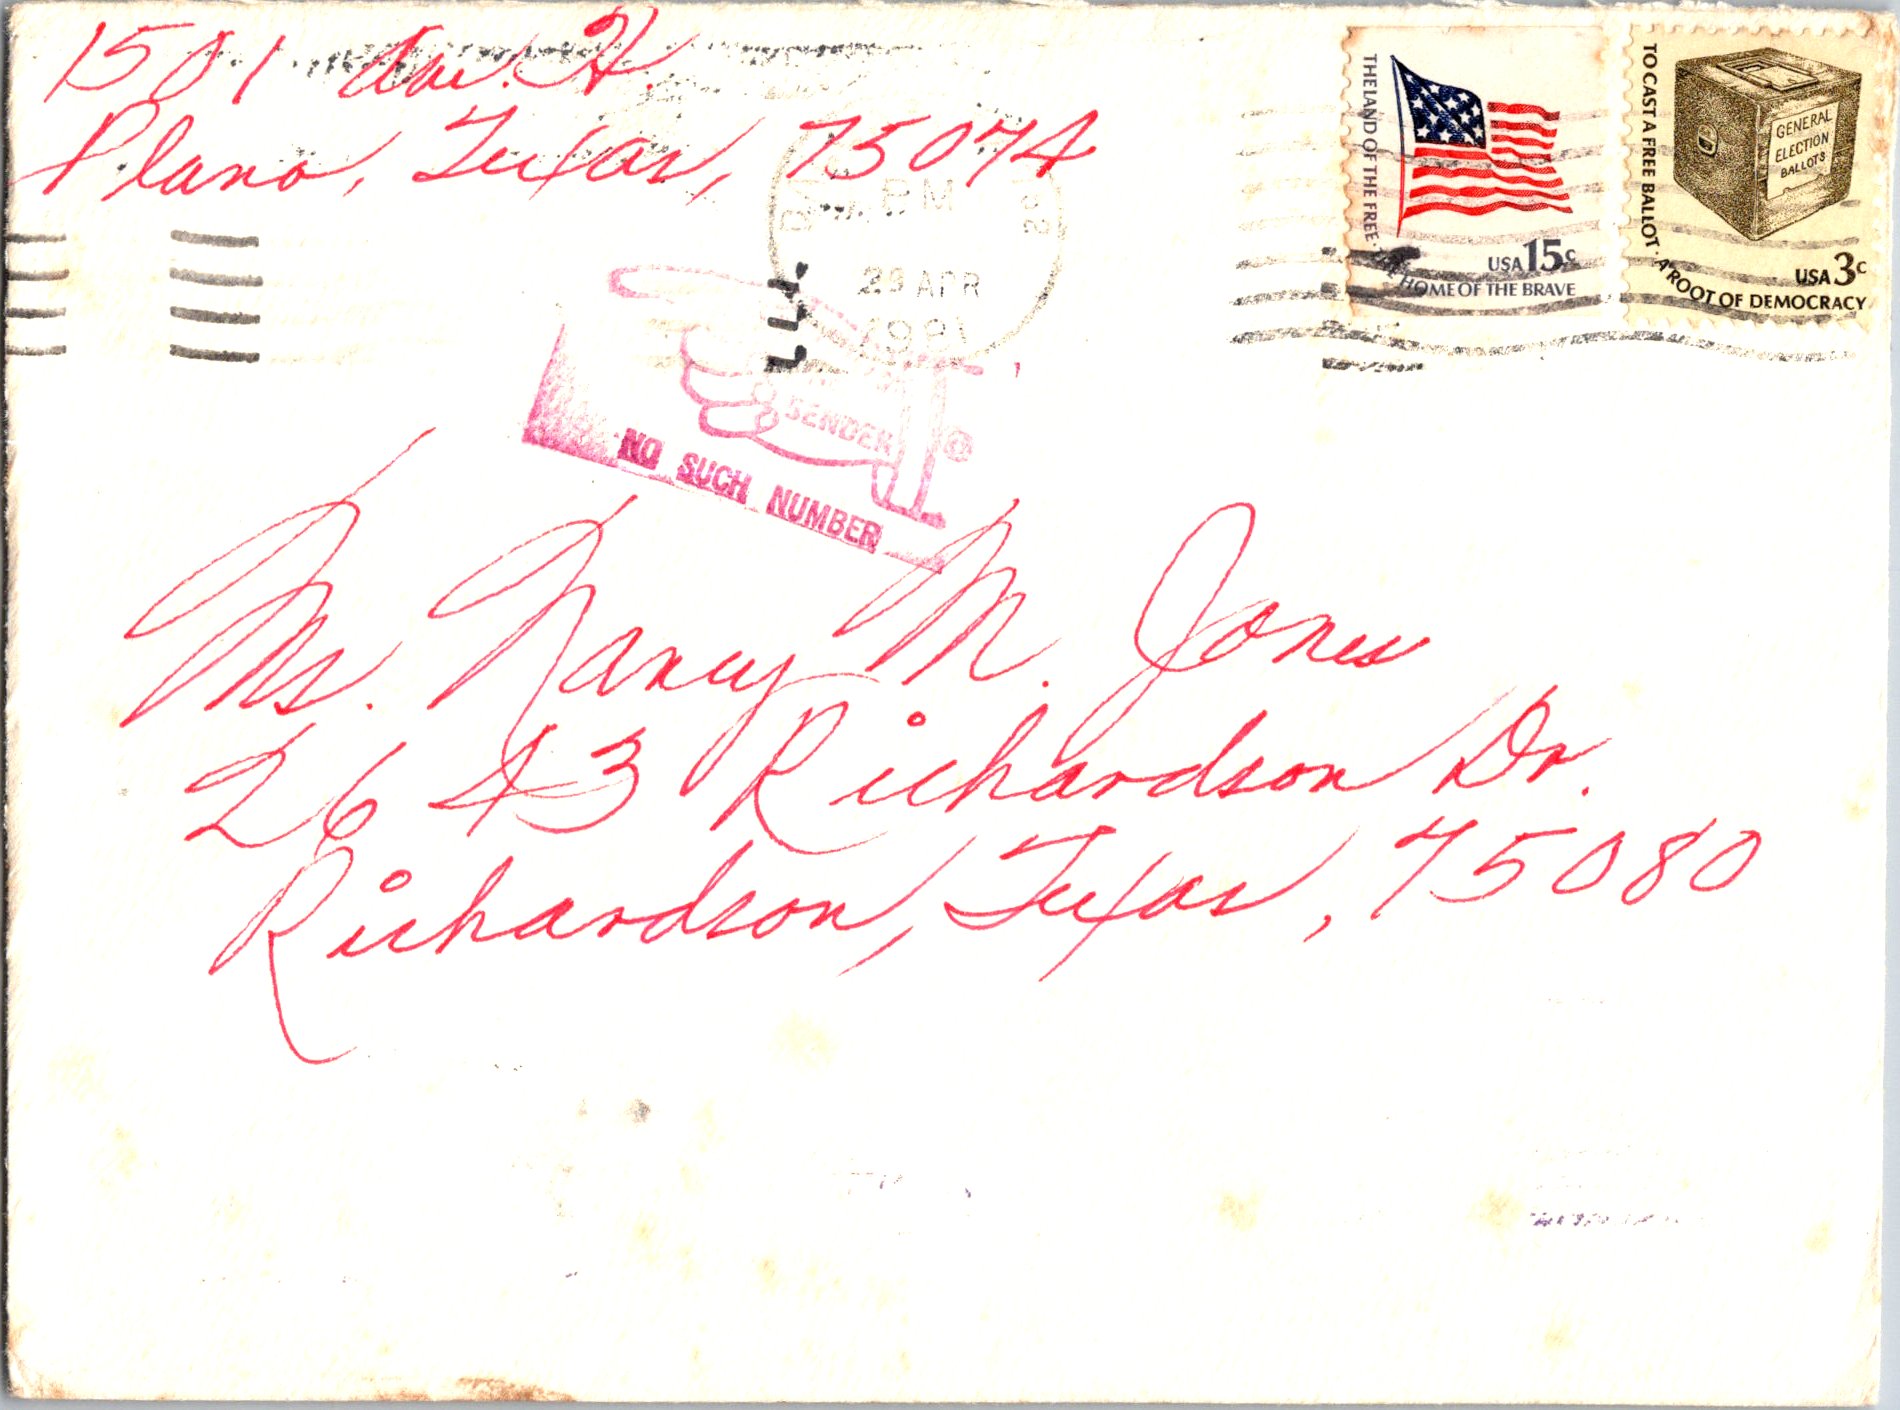 1501 Ave. H.
Plano, Texas, 75074
THE LAND OF THE FREE · THE HOME OF THE BRAVE
USA 15c
TO CAST A FREE BALLOT · A ROOT OF DEMOCRACY
GENERAL
ELECTION
BALLOTS
USA 3c
PM
29 APR
1981
SENDER
NO SUCH NUMBER
Ms. Nancy M. Jones
2643 Richardson Dr.
Richardson, Texas, 75080